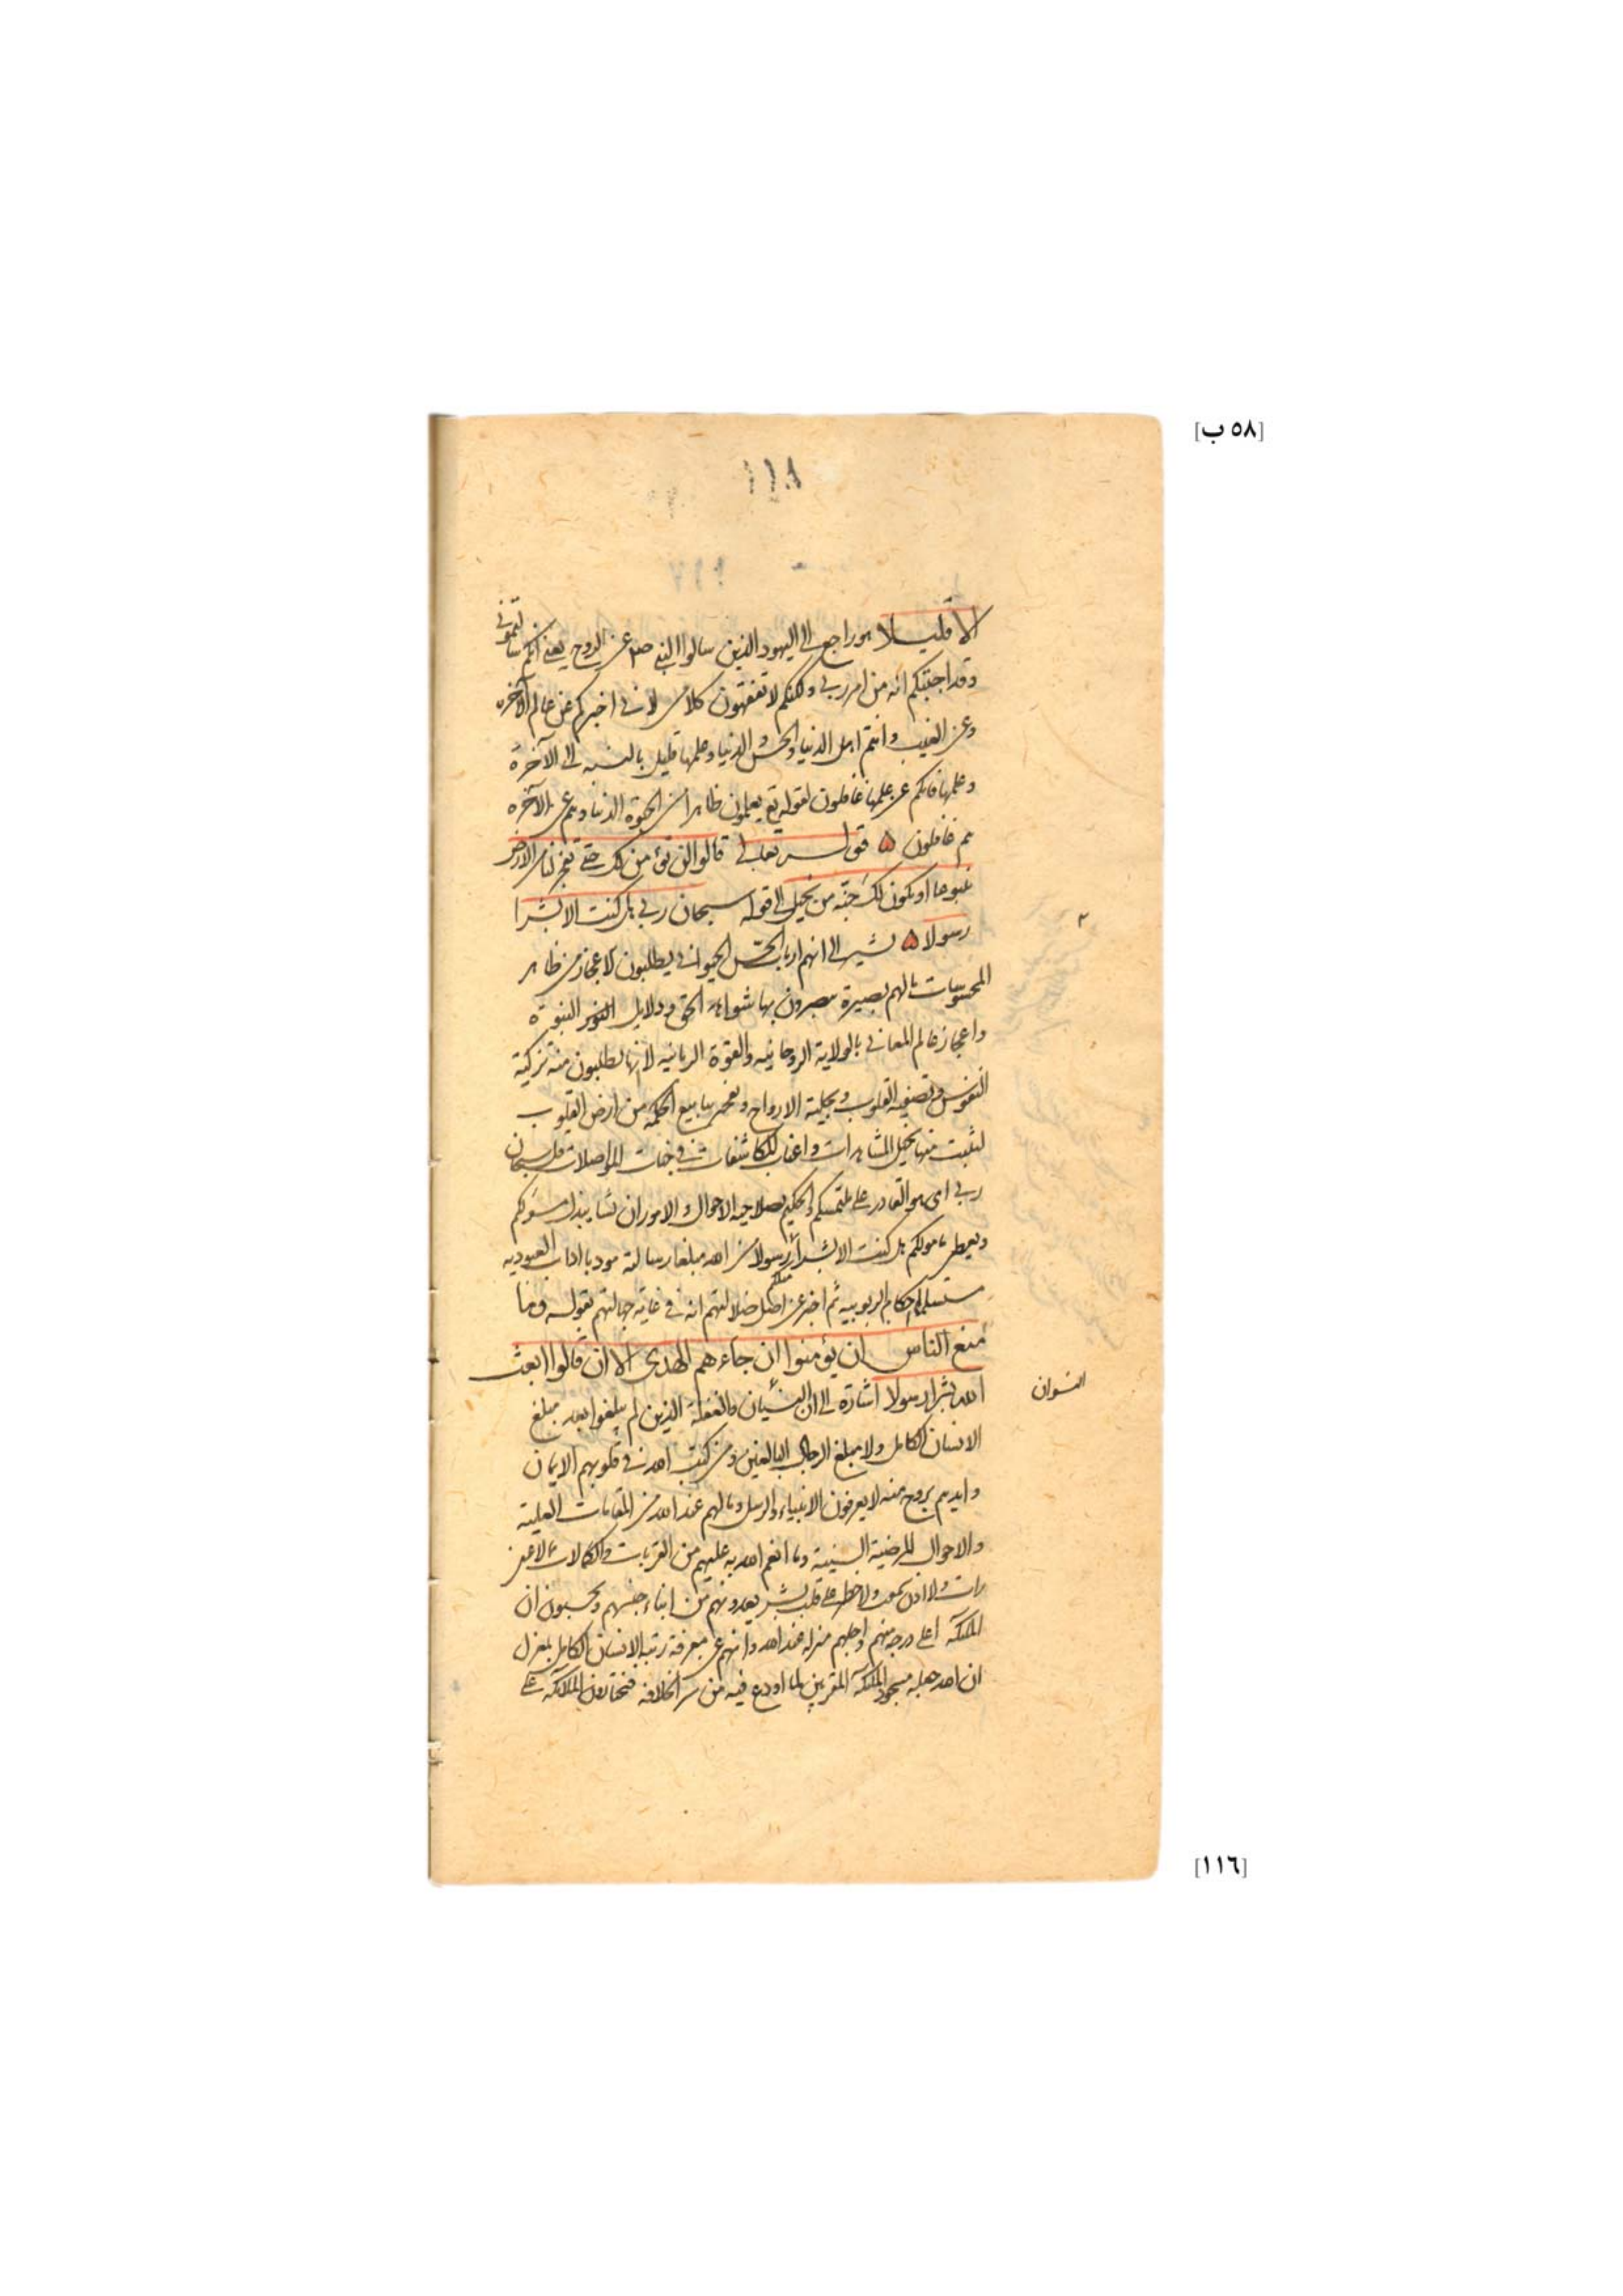 [٥٨ ب]
١١٨
١١٧
الا قليلا هو راجع الى اليهود الذين سالوا النبى صلع عن الروح يعنى انكم سالتمونى
وقد اجبتكم انه من امر ربى ولكنكم لا تفقهون كلامى لانى اخبركم عن عالم الآخره
وعن الغيب وانتم اهل الدنيا والحس والدنيا وعلمها قليل بالنسبه الى الآخرة
وعلمها فانكم عن علمها غافلون لقوله تع يعلمون ظاهرا من الحيوة الدنيا وهم عن الآخره
هم غافلون ۵ قوله تعالى قالوا لن نؤمن لك حتى تفجر لنا من الارض
ينبوعا او يكون لك جنّة من نخيل الى قوله سبحان ربى هل كنت الا بشرا
رسولا ۵ يشير الى انهم ارباب الحس الحيوانى يطلبون الاعجاز من ظاهر
المحسوسات مالهم بصيرة يبصرون بها شواهد الحق ودلايل النبوة
واعجاز عالم المعانى بالولاية الروحانيه والقوة الربانيه لانها يطلبون منه تزكية
النفوس وتصفية القلوب وتحلية الارواح وتفجر ينابيع الحكمة من ارض القلوب
لتثبت منها نخيل المشاهرات واعناب المكاشفات فى جنات المواصلات قل سبحان
ربى اى هو القادر على ملتمسكم والحكيم بصلاحيه الاحوال والامور ان نشا يبذل مسؤلكم
ويعطى مامولكم هل كنت الا بشرا رسولا من الله مبلغا رسالته مودبا اداب العبوديه
مستسلما احكام الربوبيه ثم اخبر عن اصل ضلالتهم انه فى غاية جهالتهم بقوله وما
منع الناس ان يؤمنوا ان جاءهم الهدى الا ان قالوا ابعث
الله بشرا رسولا اشارة الى ان النسيان والغفلة الذين لم يبلغوا بعد مبلغ
النسوان
الانسان الكامل ولا مبلغ الرجال البالغين ومن كتب الله فى قلوبهم الايمان
وايدهم بروح منه لا يعرفون الانبياء والرسل وما لهم عند الله من المقامات العلية
والاحوال المرضية السنية وما انعم الله به عليهم من القربات والكمالات مما لا عين
رات ولا اذن سمعت ولا خطر على قلب بشر يعدونهم من ابناء جنسهم ويحسبون ان
الملئكه اعلى درجة منهم واجلهم منزلة عند الله وانهم عن معرفة رتبة الانسان الكامل بمعزل
ان الله جعله مسجود الملئكه المقربين لما اودع فيه من سر الخلافه فيختارون الملائكة على
[١١٦]